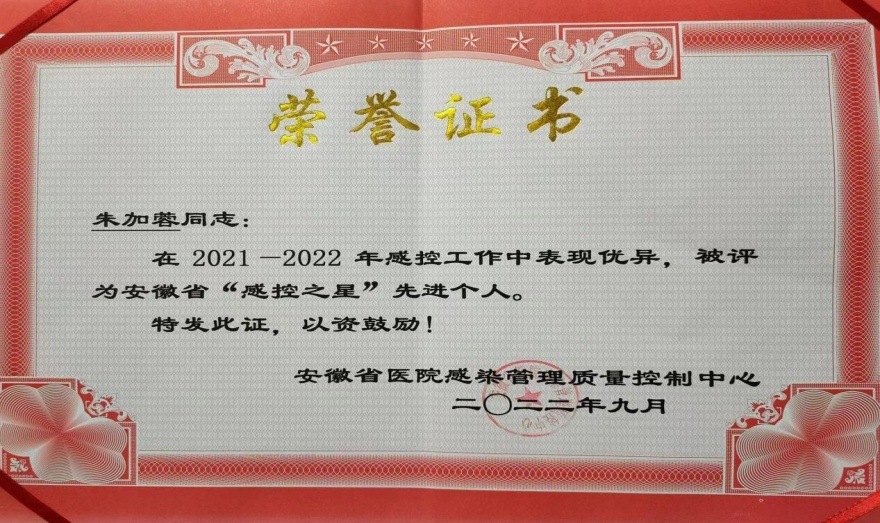 荣誉证书
朱加蓉同志：
在 2021—2022 年感控工作中表现优异，被评
为安徽省“感控之星”先进个人。
特发此证，以资鼓励！
安徽省医院感染管理质量控制中心
二〇二二年九月